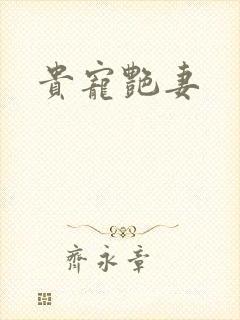 貴寵艷妻
齊永章